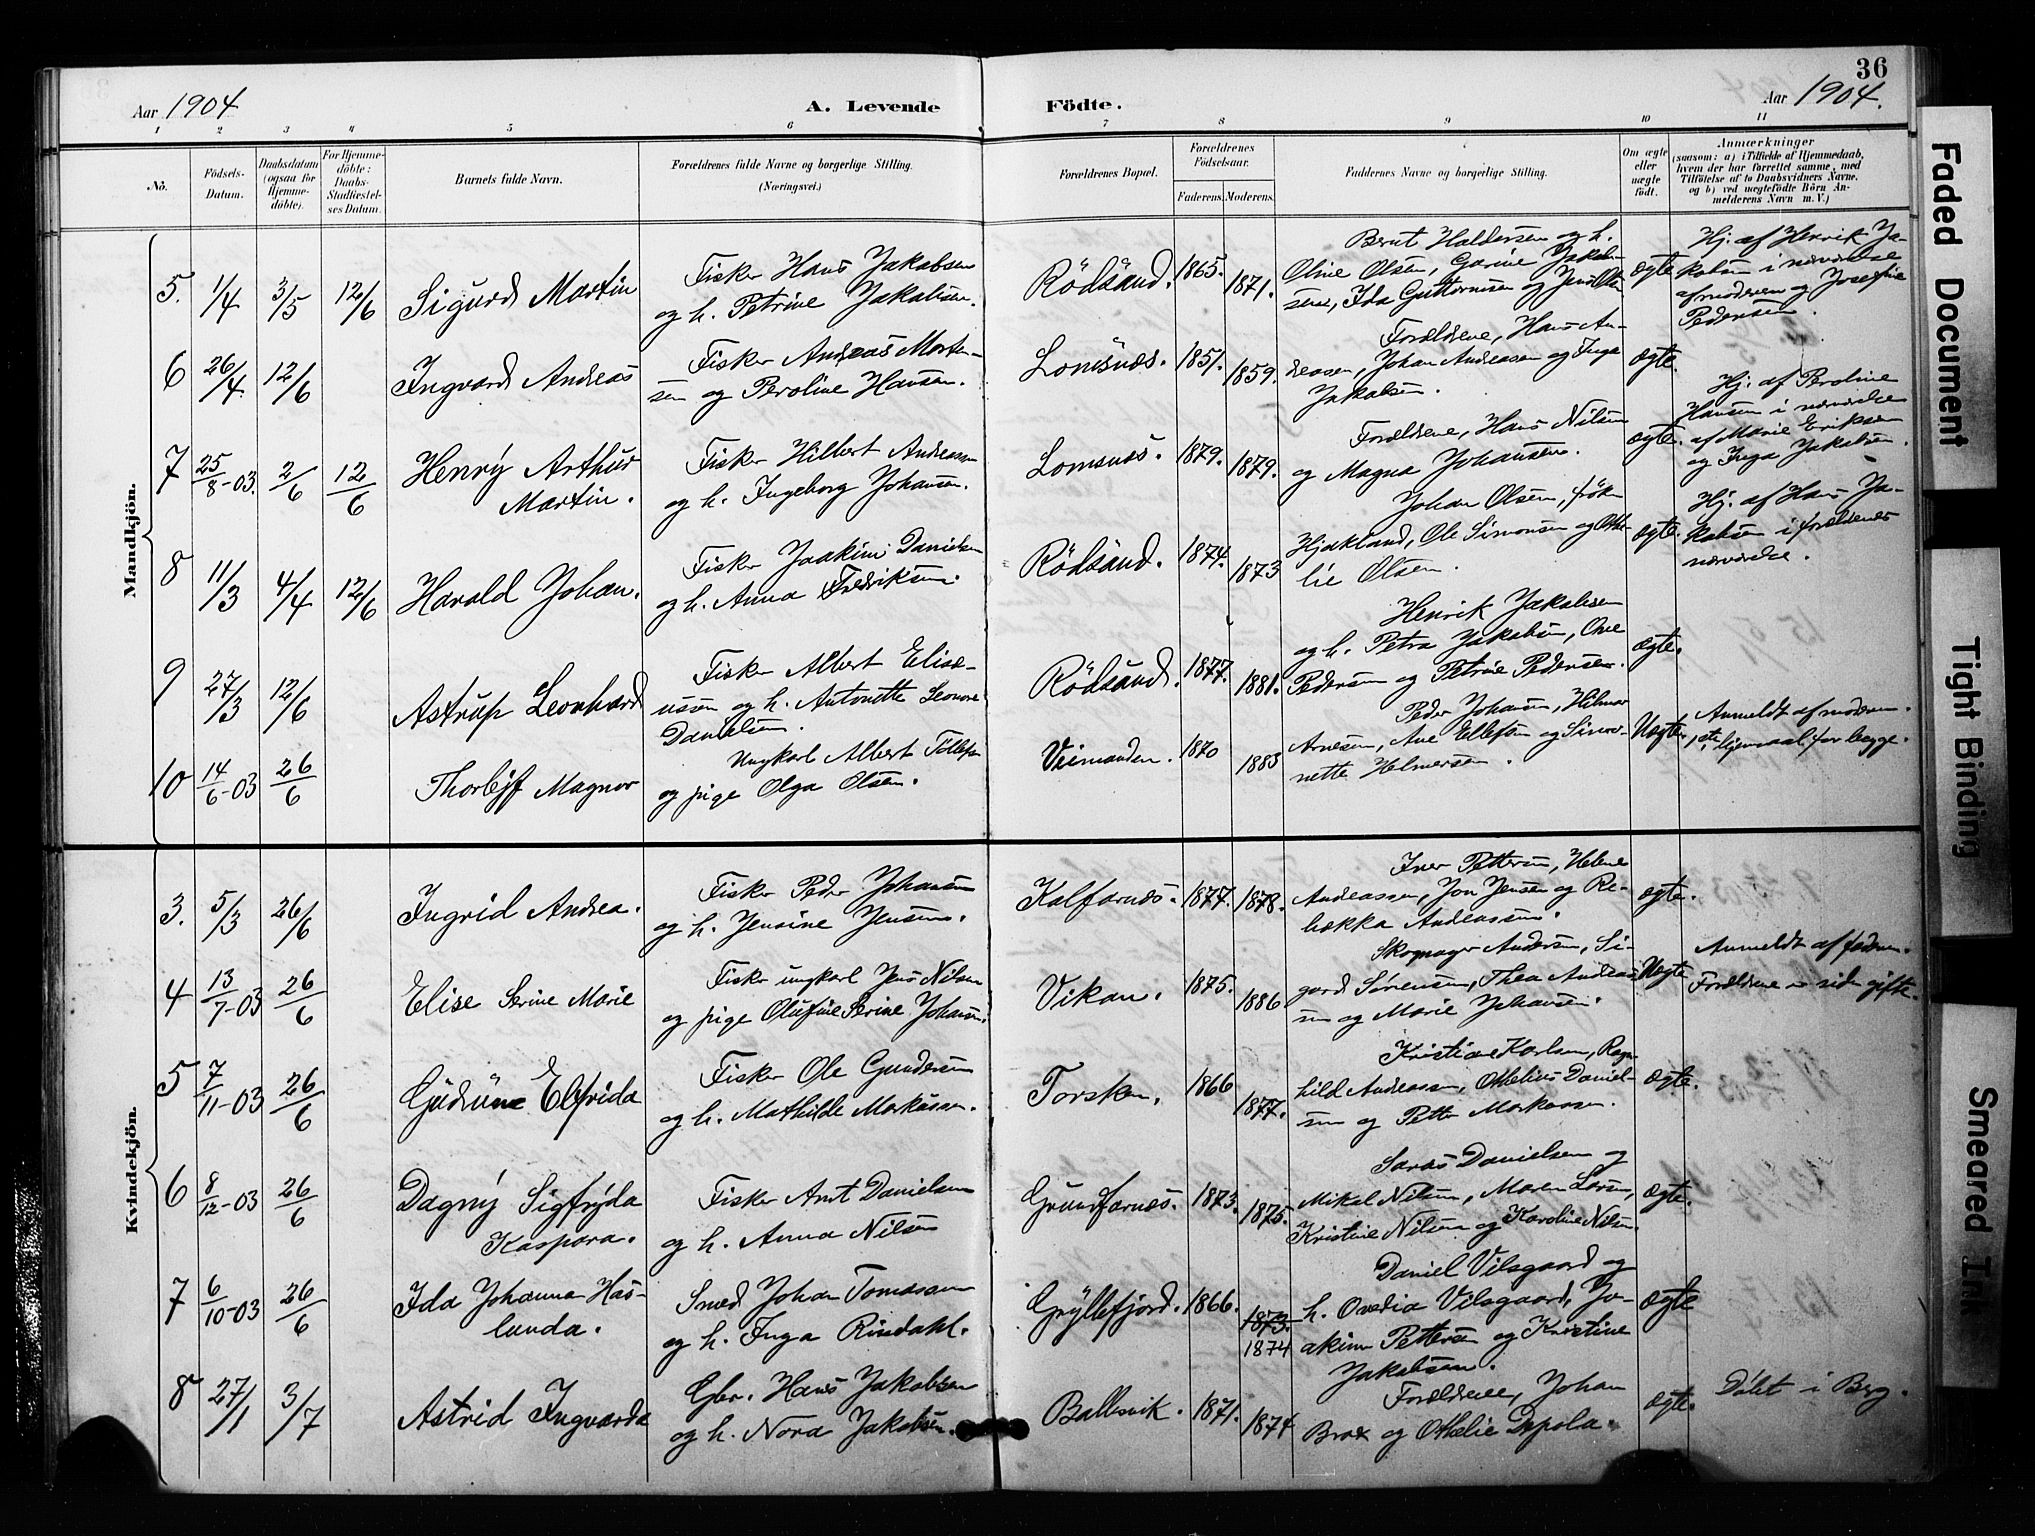 36
Aar 1904
A. Levende
Födte.
Aar 1904.
1 2 3 4 5 6 7 8 9 10 11
No.
Födsels-
Datum.
Daabsdatum
(ogsaa for
Hjemme-
döbte).
For Hjemme-
döbte:
Daabs-
Stadfæstel-
ses Datum.
Barnets fulde Navn.
Forældrenes fulde Navne og borgerlige Stilling.
(Næringsvei.)
Forældrenes Bopæl.
Forældrenes
Födselsaar.
Faderens. Moderens.
Faddernes Navne og borgerlige Stilling.
Om ægte
eller
uægte
födt.
Anmærkninger
(saasom: a) i Tilfælde af Hjemmedaab,
hvem der har forrettet samme, med
Tilföielse af to Daabsvidners Navne,
og b) ved uægtefödte Börn An-
melderens Navn m. V.)
Mandkjön.
5. 1/4 3/5 12/6 Sigurd Martin
Fisker Hans Jakobsen
og h. Petrine Jakobsen.
Rödsand. 1865. 1871.
Bernt Haldorsen og h.
Oline Olsen, Gorine Jakob-
sen, Ida Guttormsen og Jens Olsen
ægte
Hj. af Henrik Ja-
kobsen i nærværelse
af moderen og Josefine
Pedersen.
6 26/4 12/6 Ingvard Andreas
Fisker Andreas Morten-
sen og Peroline Hansen.
Lomsnæs. 1851. 1859.
Forældrene, Hans An-
dreasen, Johan Andreassen og Inga
Jakobsen.
ægte.
7 25/8-03. 2/6 12/6 Henry Arthur
Martin.
Fisker Hilbert Andreassen
og h. Ingeborg Johansen.
Lomsnæs. 1879. 1879.
Forældrene, Hans Nilsen
og Magna Johansen.
ægte.
Hj. af Peroline
Hansen i nærværelse
af Marie Eriksen
og Inga Jakobsen.
8 11/3 4/4 12/6 Harald Johan.
Fisker Joakim Danielsen
og h. Anna Fredriksen.
Rödsand. 1874. 1873
Johan Olsen, frøken
Hjakland, Ole Simonsen og Othe-
lie Olsen.
ægte.
Hj. af Hans Ja-
kobsen i forældrenes
nærværelse.
9 27/3 12/6 Astrup Leonhard
Fisker Albert Elise-
ussen og h. Antonette Leonore
Danielsen.
Rödsand. 1877. 1881.
Henrik Jakobsen
og h. Petra Jakobsen, Ole
Pedersen og Petrine Pedersen.
ægte.
10 14/6-03 26/6 Thorleif Magnor
Ungkarl Albert Tollefsen
og pige Olga Olsen.
Veimanden. 1870 1883
Peder Johansen, Hilmar
Arnesen, Ane Ellefsen og Simo-
nette Helmersen.
Uægte
Anmeldt af moderen.
1ste leiermaal for begge.
Kvindekjön.
3. 5/3 26/6 Ingrid Andrea.
Fisker Peder Johansen
og h. Jensine Jensen.
Kalfarnæs. 1874. 1878.
Iver Pettersen, Helene
Andreassen, Jon Jensen og Re-
bekka Andreassen.
ægte.
4 13/7-03 26/6 Elise Serine Marie
Fisker ungkarl Jens Nilsen
og pige Olufine Serine Johansen.
Vikan. 1875. 1886
Skomager Andersen, Si-
gurd Sörensen, Thea Andreas-
sen og Marie Johansen.
Uægte
Anmeldt af faderen.
Forældrene er siden gifte.
5 7/11-03 26/6 Gudrun Elfrida
Fisker Ole Gundersen
og h. Mathilde Markussen.
Torsken. 1866 1877.
Kristine Karlsen, Ragn-
hild Andreassen, Othelius Daniel-
sen og Petter Markussen.
ægte.
6 8/12-03 26/6 Dagny Sigfryda
Kaspara.
Fisker Arnt Danielsen
og h. Anna Nilsen
Grundfarnæs. 1873. 1875.
Saras Danielsen og
Mikal Nilsen, Maren Larsen,
Kristine Nilsen og Karoline Nilsen.
ægte.
7 6/10-03 26/6 Ida Johanna Has-
lunda.
Smed Johan Tomassen
og h. Inga Rindahl.
Gryllefjord. 1866. 1873.
1874
Daniel Vilsgaard og
h. Ovedia Vilsgaard, Jo-
akim Pettersen og Kristine
Jakobsen.
ægte
8 27/1 3/7 Astrid Ingvarda
Gbr. Hans Jakobsen
og h. Nora Jakobsen.
Ballesvik. 1871. 1874
Forældrene, Johan
Brox og Othelie Depola.
ægte.
Döbt i Berg.
Faded Document
Tight Binding
Smeared Ink